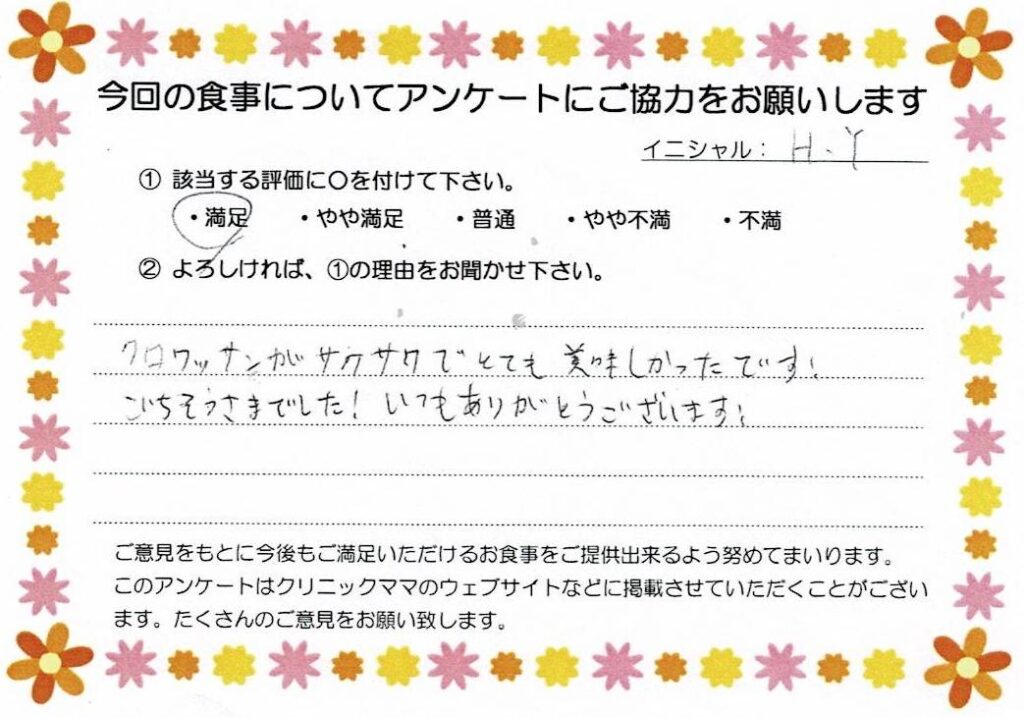 今回の食事についてアンケートにご協力をお願いします
イニシャル： H.Y
① 該当する評価に〇を付けて下さい。
・満足 ・やや満足 ・普通 ・やや不満 ・不満
② よろしければ、①の理由をお聞かせ下さい。
クロワッサンがサクサクでとても美味しかったです!
ごちそうさまでした! いつもありがとうございます!
ご意見をもとに今後もご満足いただけるお食事をご提供出来るよう努めてまいります。
このアンケートはクリニックママのウェブサイトなどに掲載させていただくことがござい
ます。たくさんのご意見をお願い致します。